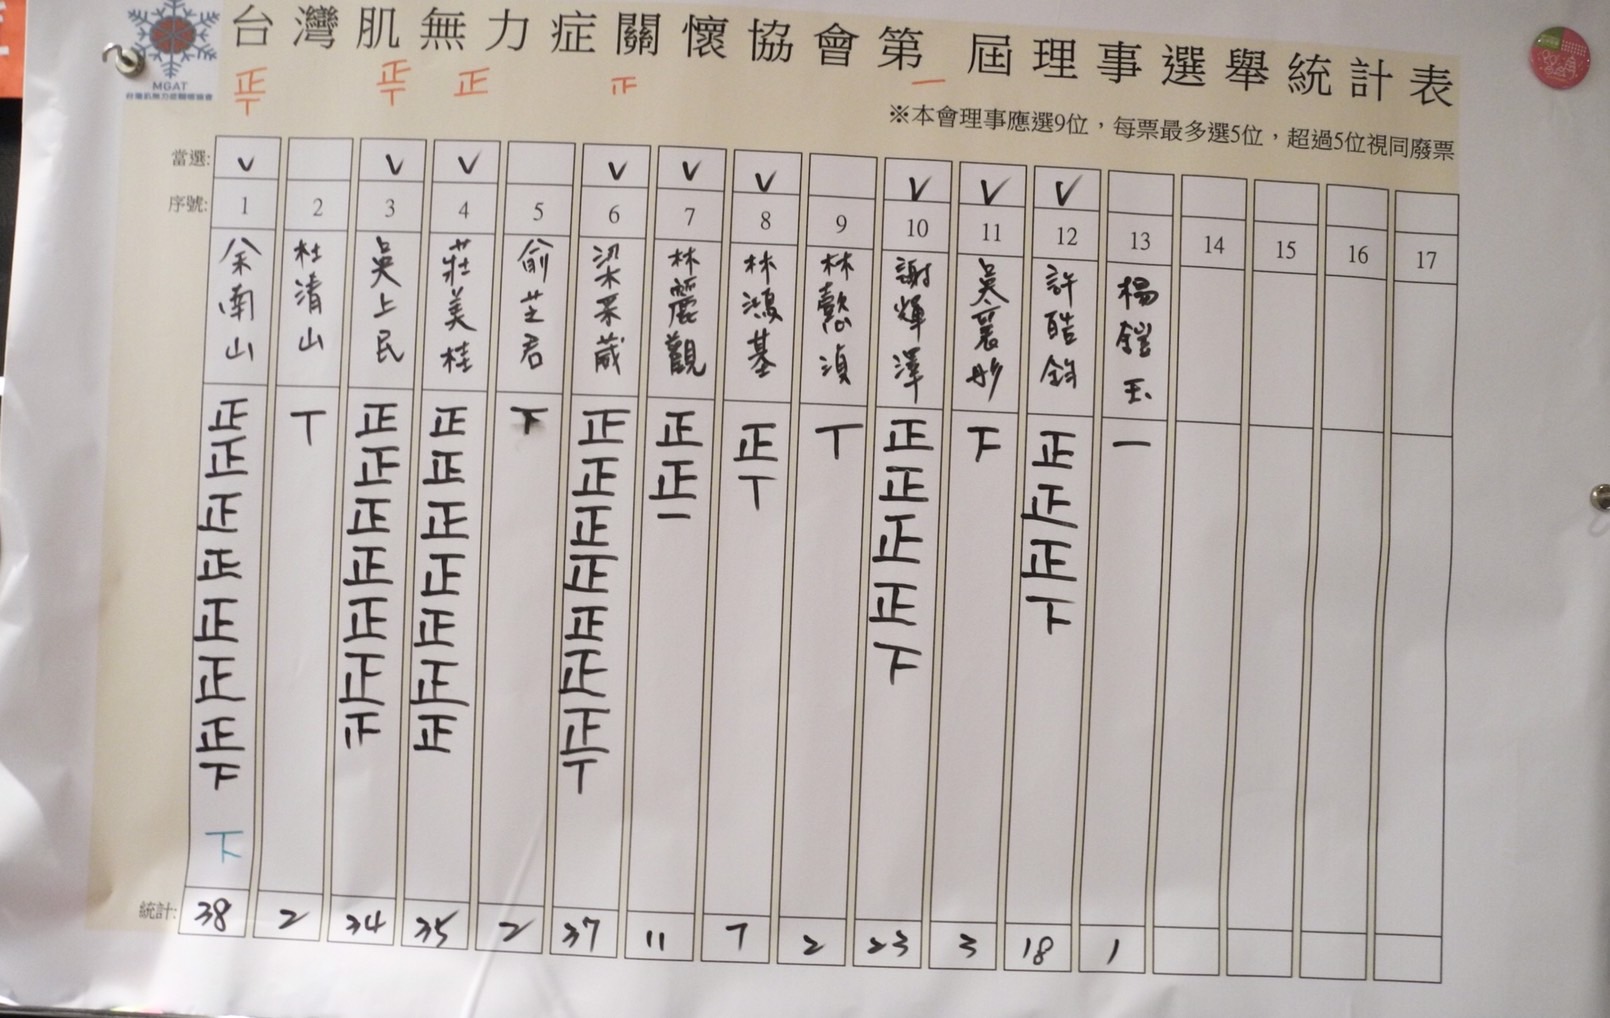 台灣肌無力症關懷協會第 屆理事選舉統計表
MGAT
台灣肌無力症關懷協會
正丅 正丅 正 正 一
※本會理事應選9位，每票最多選5位，超過5位視同廢票
當選: V V V V V V V V V
序號: 1 2 3 4 5 6 7 8 9 10 11 12 13 14 15 16 17
余南山 杜清山 吳上民 莊美桂 俞芝君 梁采葳 林麗觀 林鴻基 林懿湞 謝輝澤 吳襄彤 許皓鈞 楊鎧玉
正正正正正正正下 丅 正正正正正正正 正正正正正正正 下 正正正正正正正丅 正正一 正丅 丅 正正正正下 下 正正正下 一
下
統計: 38 2 34 35 2 37 11 7 2 23 3 18 1